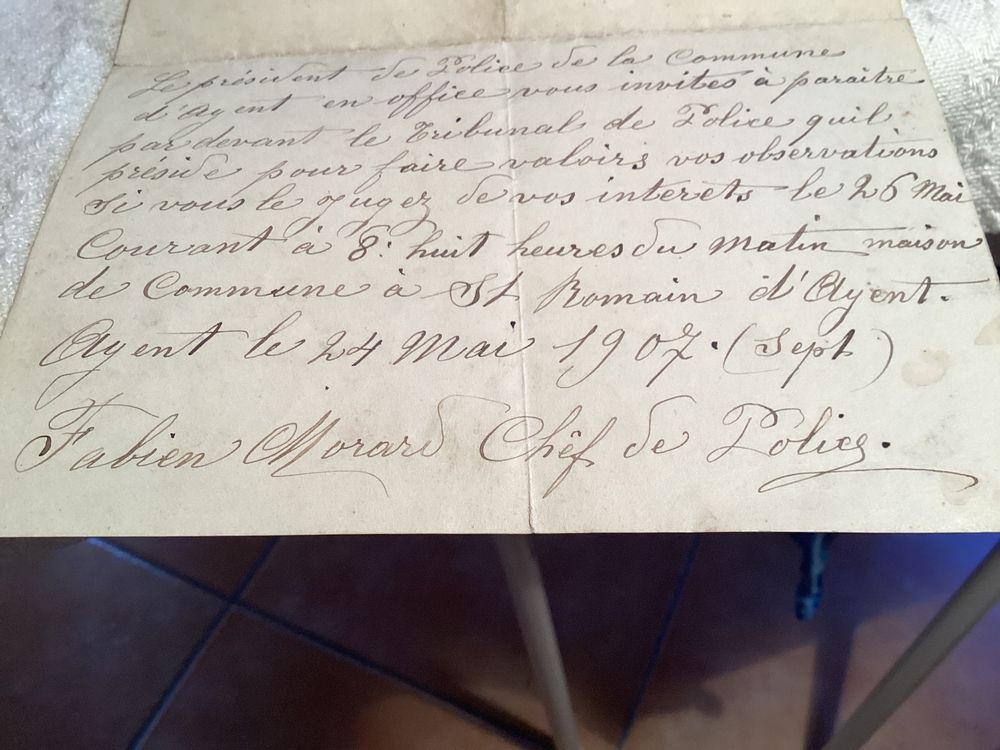 Le président de Police de la Commune
d'Ayent en office vous invites à paraitre
par devant le Tribunal de Police quil
préside pour faire valoirs vos observations
si vous le jugez de vos interets le 26 Mai
Courant à 8: huit heures du Matin maison
de Commune à St Romain d'Ayent.
Ayent le 24 Mai 1907. (Sept)
Fabien Morard Chêf de Police.